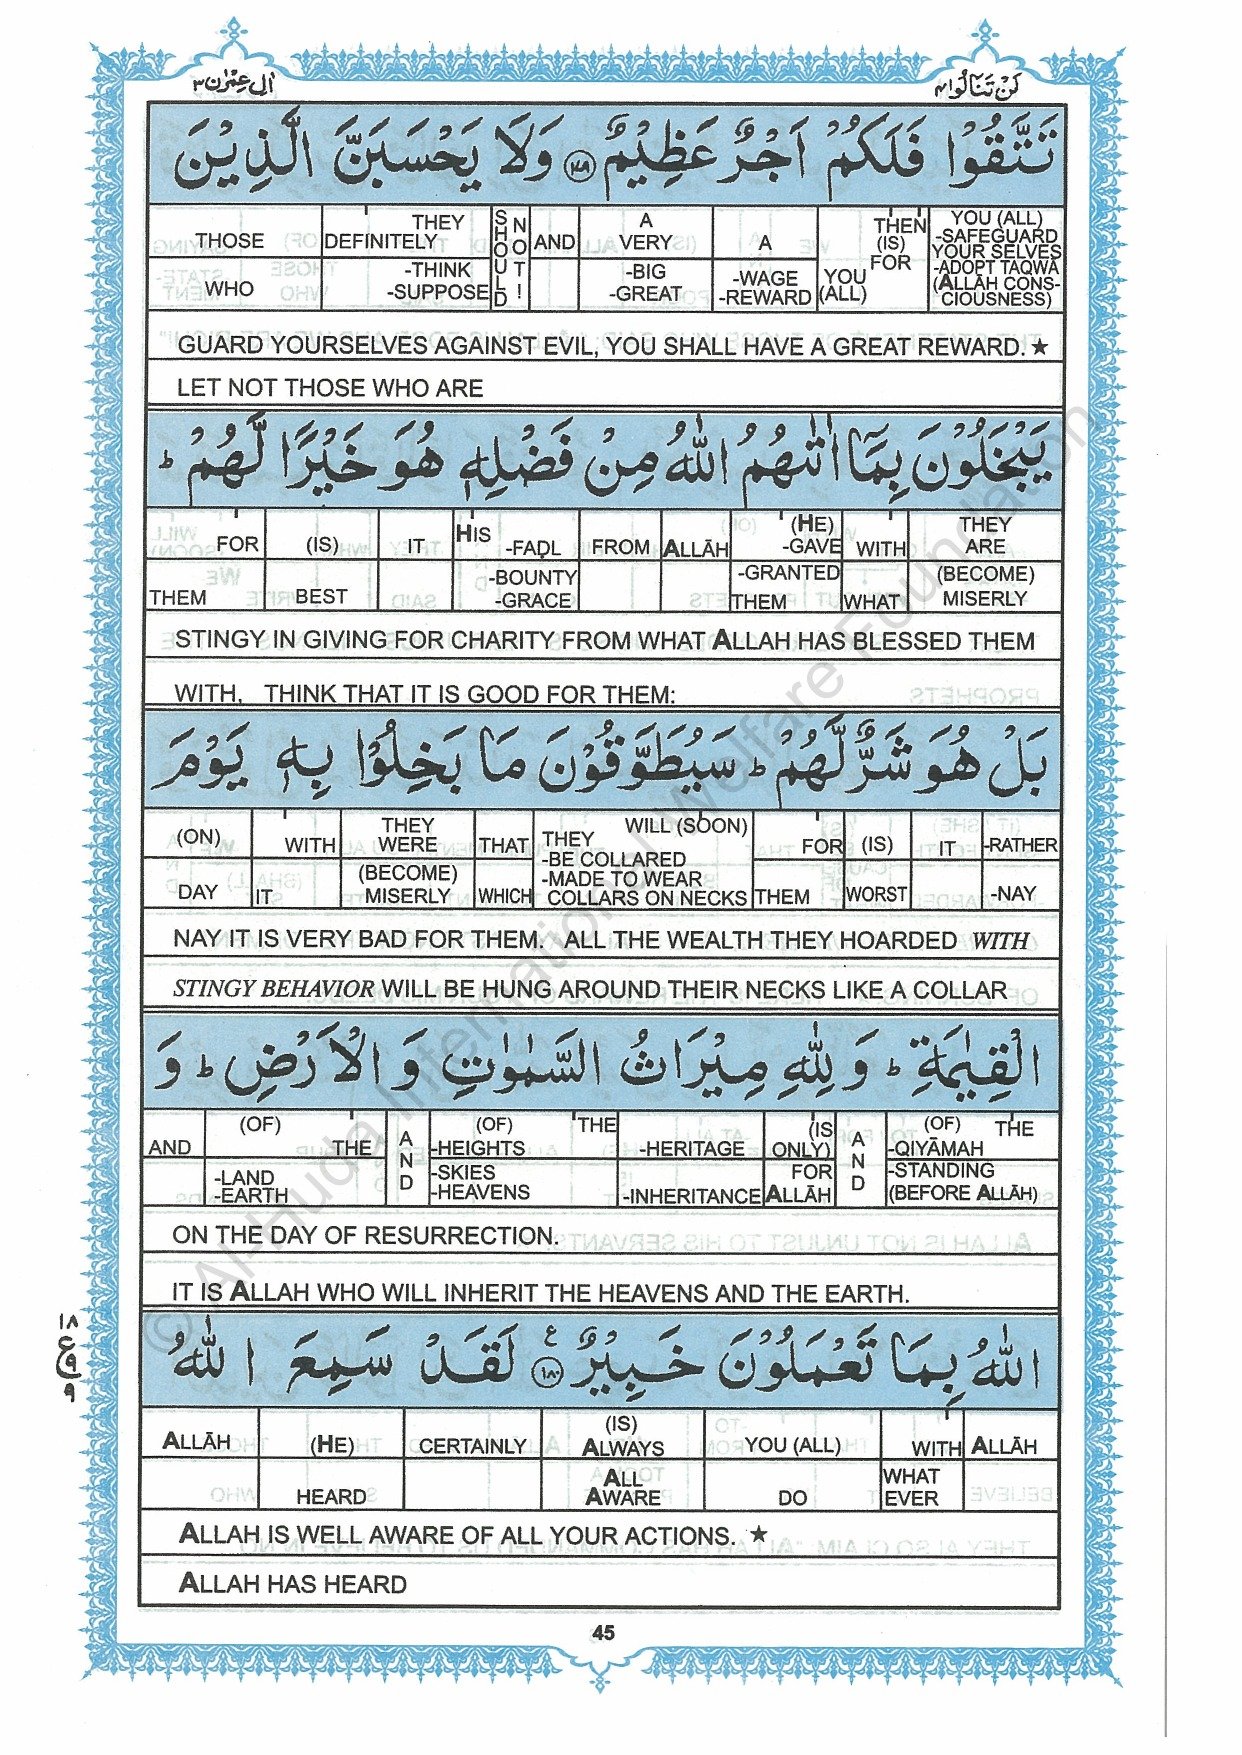 اٰل عِمْرٰن ٣
لَنْ تَنَالُوا ٤
تَتَّقُوْا فَلَكُمْ اَجْرٌ عَظِيْمٌ ﴿۱۷۹﴾ وَلَا يَحْسَبَنَّ الَّذِيْنَ
THOSE WHO
THEY DEFINITELY -THINK -SUPPOSE
SHOULD NOT!
AND
A VERY -BIG -GREAT
A -WAGE -REWARD
THEN (IS) FOR YOU (ALL)
YOU (ALL) -SAFEGUARD YOUR SELVES -ADOPT TAQWĀ (ALLĀH CONS-CIOUSNESS)
GUARD YOURSELVES AGAINST EVIL, YOU SHALL HAVE A GREAT REWARD. ★
LET NOT THOSE WHO ARE
يَبْخَلُوْنَ بِمَآ اٰتٰىهُمُ اللّٰهُ مِنْ فَضْلِهٖ هُوَ خَيْرًا لَّهُمْ ؕ
FOR THEM
(IS) BEST
IT
HIS -FAḌL -BOUNTY -GRACE
FROM
ALLĀH
(HE) -GAVE -GRANTED THEM
WITH WHAT
THEY ARE (BECOME) MISERLY
STINGY IN GIVING FOR CHARITY FROM WHAT ALLAH HAS BLESSED THEM
WITH, THINK THAT IT IS GOOD FOR THEM:
بَلْ هُوَ شَرٌّ لَّهُمْ ؕ سَيُطَوَّقُوْنَ مَا بَخِلُوْا بِهٖ يَوْمَ
(ON) DAY
WITH IT
THEY WERE (BECOME) MISERLY
THAT WHICH
THEY WILL (SOON) -BE COLLARED -MADE TO WEAR COLLARS ON NECKS
FOR THEM
(IS) WORST
IT
-RATHER -NAY
NAY IT IS VERY BAD FOR THEM. ALL THE WEALTH THEY HOARDED WITH
STINGY BEHAVIOR WILL BE HUNG AROUND THEIR NECKS LIKE A COLLAR
الْقِيٰمَةِ ؕ وَ لِلّٰهِ مِيْرَاثُ السَّمٰوٰتِ وَ الْاَرْضِ ؕ وَ
AND
(OF) THE -LAND -EARTH
AND
(OF) THE -HEIGHTS -SKIES -HEAVENS
-HERITAGE -INHERITANCE
(IS ONLY) FOR ALLĀH
AND
(OF) THE -QIYĀMAH -STANDING (BEFORE ALLĀH)
ON THE DAY OF RESURRECTION.
IT IS ALLAH WHO WILL INHERIT THE HEAVENS AND THE EARTH.
۱۸
ع
۹
۹
اللّٰهُ بِمَا تَعْمَلُوْنَ خَبِيْرٌ ﴿۱۸۰﴾ ع لَقَدْ سَمِعَ اللّٰهُ
ALLĀH
(HE) HEARD
CERTAINLY
(IS) ALWAYS ALL AWARE
YOU (ALL) DO
WITH WHAT EVER
ALLĀH
ALLAH IS WELL AWARE OF ALL YOUR ACTIONS. ★
ALLAH HAS HEARD
45
© Al-Huda International Welfare Foundation